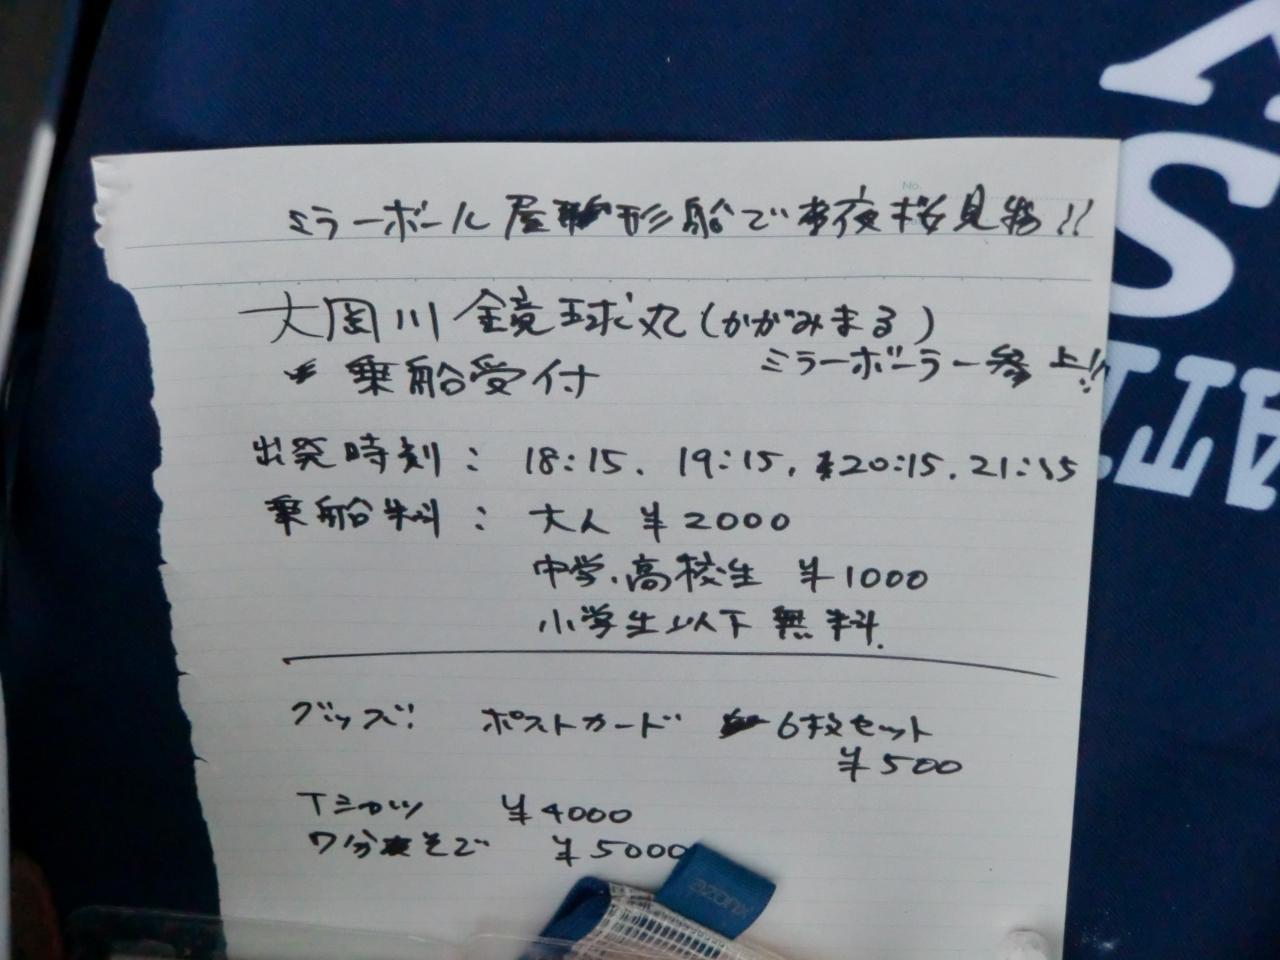 No.
ミラーボール屋形船で夜桜見物!!
大岡川 鏡球丸(かがみまる)
乗船受付 ミラーボーラー参上!!
出発時刻: 18:15. 19:15. 20:15. 21:15
乗船料: 大人 ¥2000
中学.高校生 ¥1000
小学生以下 無料.
グッズ! ポストカード 6枚セット
¥500
Tシャツ ¥4000
7分そで ¥5000